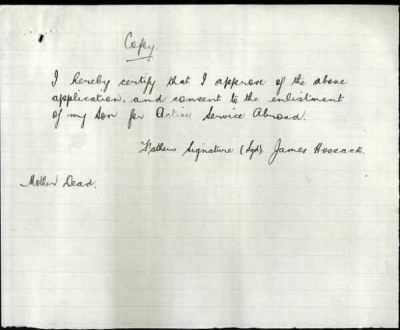 Copy
I hereby certify that I approve of the above
application, and consent to the enlistment
of my Son for Active Service Abroad.
Fathers Signature (Sgd). James Hossack.
Mother Dead.